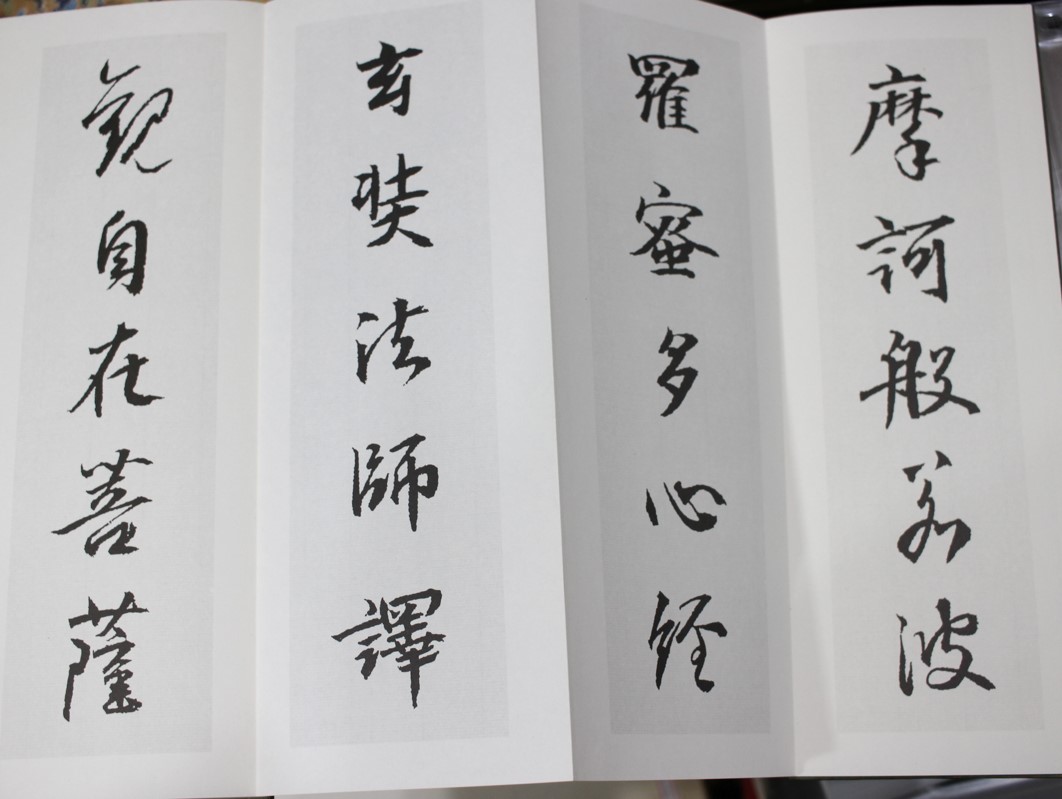 摩訶般若波
羅蜜多心経
玄奘法師譯
観自在菩薩